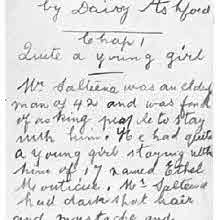 by Daisy Ashford
Chap 1
Quite a young girl
Mr Salteena was an elderly
man of 42 and was fond
of asking people to stay
with him. He had quite
a young girl staying with
him of 17 named Ethel
Monticue. Mr Salteena
had dark short hair
and mustache and